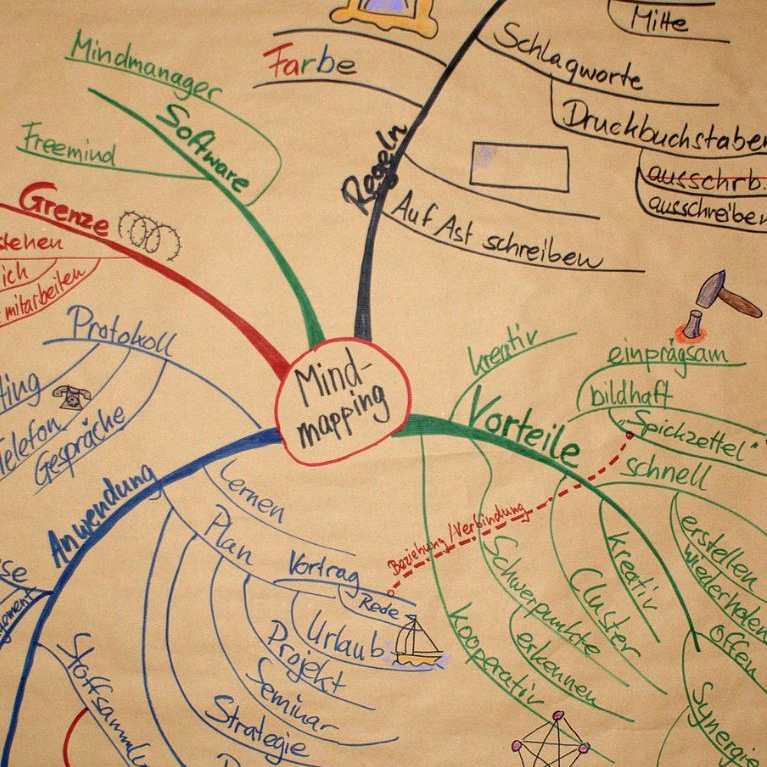 Mind-
mapping
Regeln
Mitte
Schlagworte
Druckbuchstaben
ausschrb.
ausschreiben
Farbe
Auf Ast schreiben
Software
Mindmanager
Freemind
Grenze
stehen
ich
mitarbeiten
Protokoll
ting
Telefon
Gespräche
Anwendung
Lernen
Plan
Vortrag
Rede
Urlaub
Projekt
Seminar
Strategie
se
Stoffsamml
Vorteile
kreativ
einprägsam
bildhaft
"Spickzettel"
schnell
erstellen
wiederholen
offen
Synergie
kreativ
Cluster
Schwerpunkte
erkennen
kooperativ
Beziehung/Verbindung